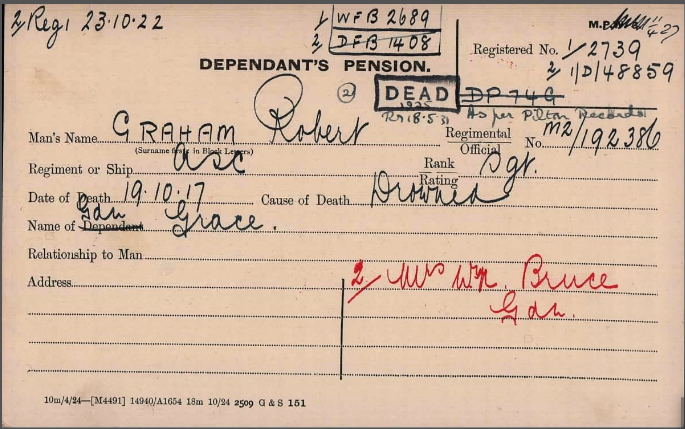 2/ Reg. 23.10.22
1/ WFB 2689
2/ DFB 1408
M.P.
11/4/27
Registered No. 1/2739
2/ 1/D/48859
DEPENDANT'S PENSION.
2 DEAD DP 74G
1925
18.5.31 As per Pilton Records
Man's Name GRAHAM Robert
(Surname first in Block Letters)
Regimental
Official No. M2/192386
Regiment or Ship ASC
Rank
Rating Sgt.
Date of Death 19.10.17 Cause of Death Drowned
Gdn
Name of Dependant Grace.
Relationship to Man
Address
2/ Mrs Wm. Bruce
Gdn.
10m/4/24—[M4491] 14940/A1654 18m 10/24 2509 G & S 151